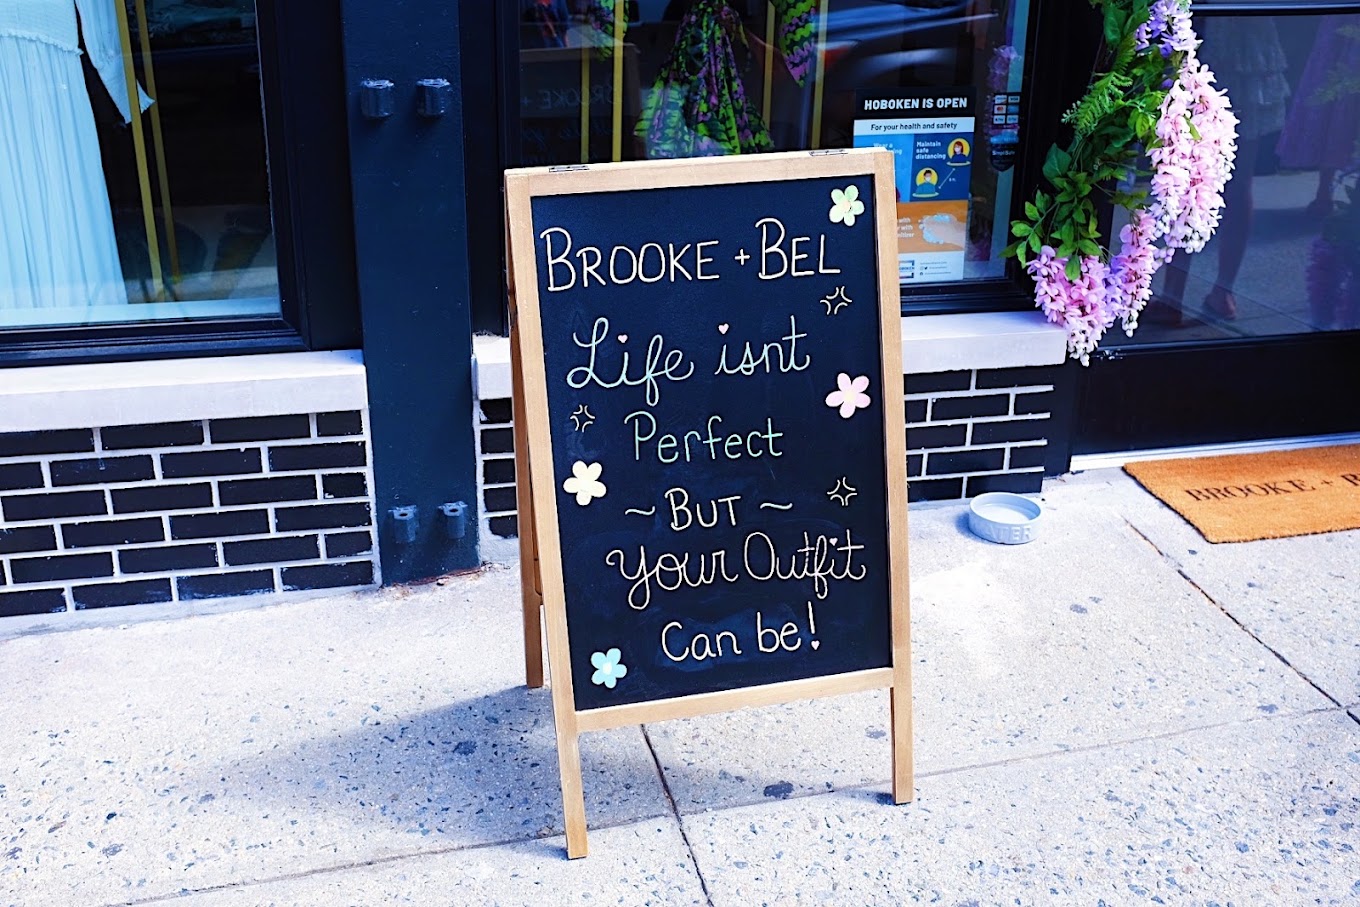 BROOKE + BEL
Life isnt
Perfect
~ BUT ~
your Outfit
Can be!
HOBOKEN IS OPEN
For your health and safety
Maintain
safe
distancing
BROOKE +